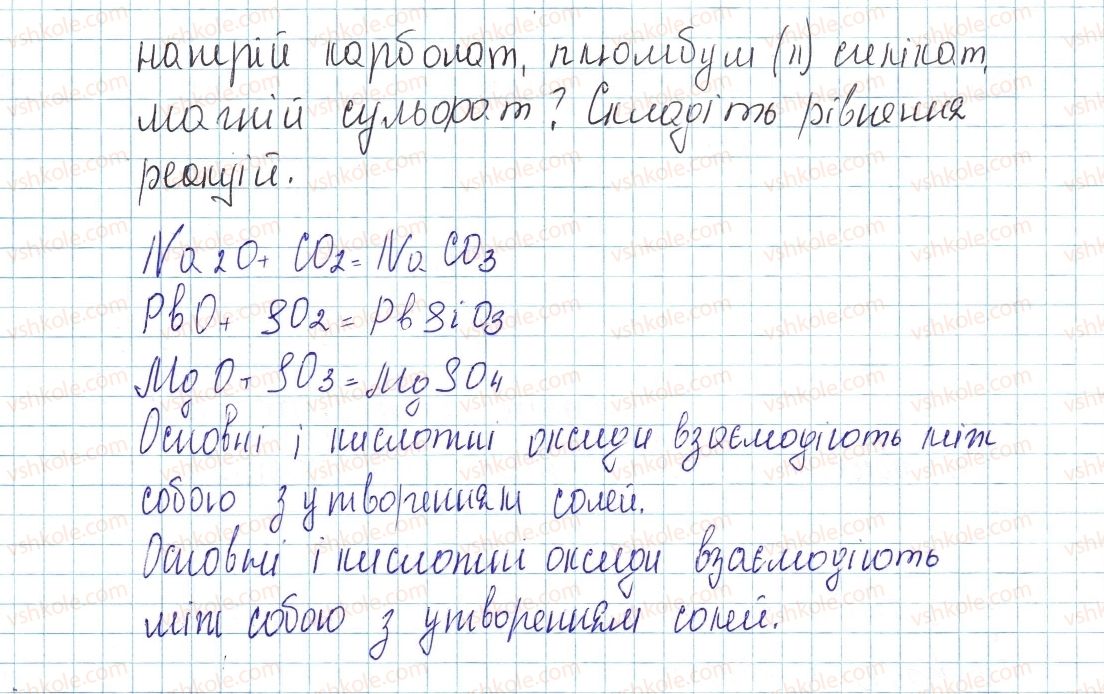 натрій карбонат, плюмбум (II) силікат,
магній сульфат? Складіть рівняння
реакцій.
Na2O + CO2 = NaCO3
PbO + SO2 = PbSiO3
MgO + SO3 = MgSO4
Основні і кислотні оксиди взаємодіють між
собою з утворенням солей.
Основні і кислотні оксиди взаємодіють
між собою з утворенням солей.